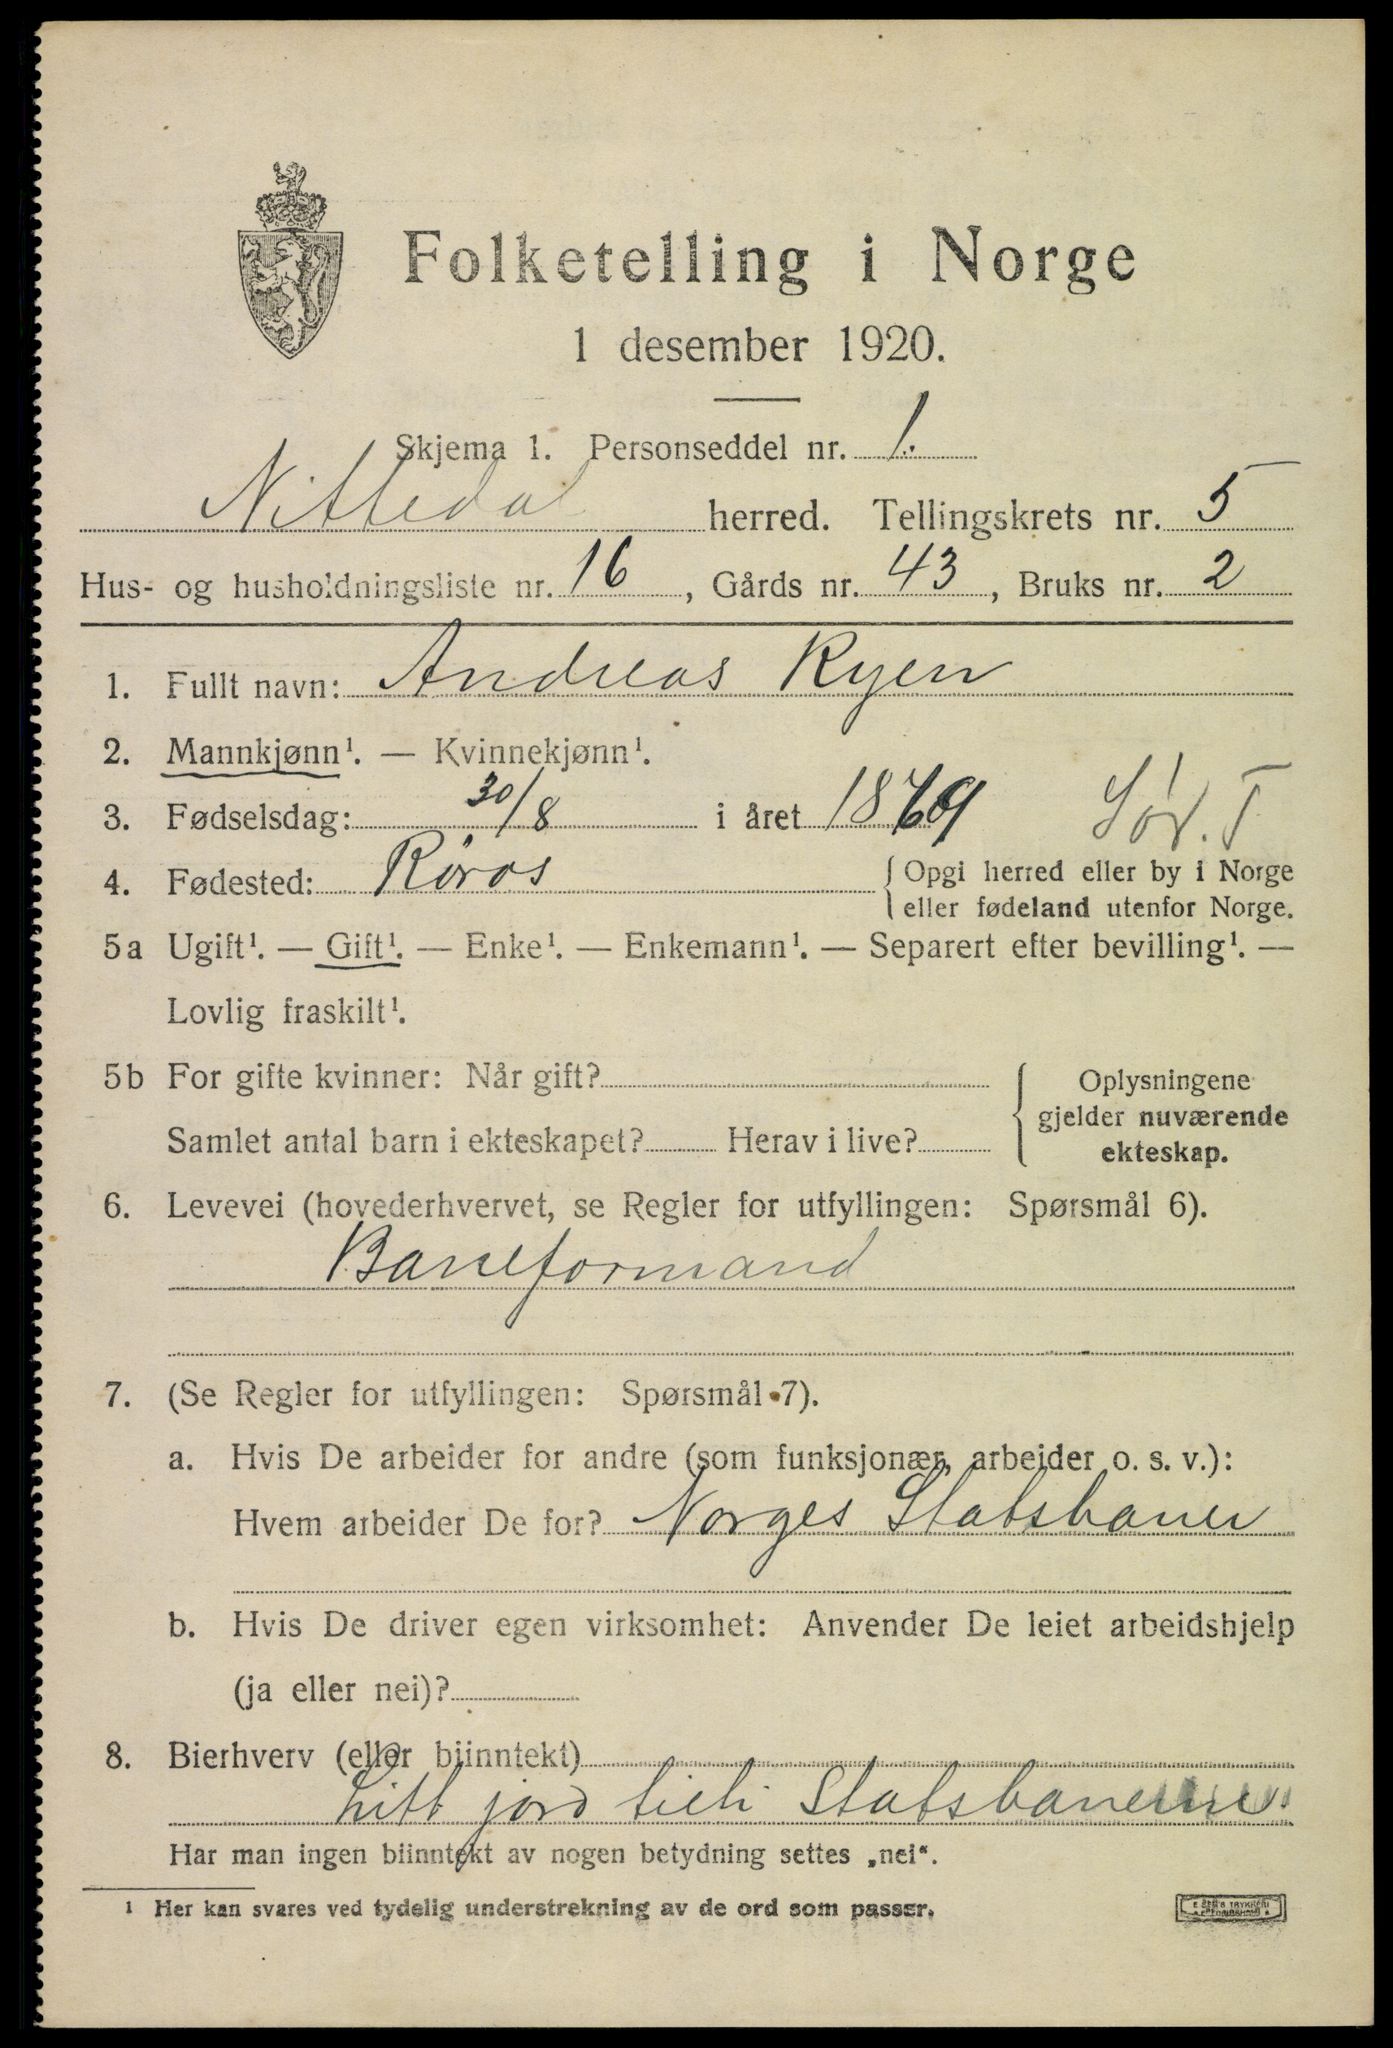 Folketelling i Norge
1 desember 1920.
Skjema 1. Personseddel nr. 1.
Nittedal herred. Tellingskrets nr. 5
Hus- og husholdningsliste nr. 16, Gårds nr. 43, Bruks nr. 2
1. Fullt navn: Andreas Ryen
2. Mannkjønn¹. — Kvinnekjønn¹.
3. Fødselsdag: 30/8 i året 1869 Sør. T
4. Fødested: Røros { Opgi herred eller by i Norge
eller fødeland utenfor Norge.
5a Ugift¹. — Gift¹. — Enke¹. — Enkemann¹. — Separert efter bevilling¹. —
Lovlig fraskilt¹.
5b For gifte kvinner: Når gift? { Oplysningene
gjelder nuværende
Samlet antal barn i ekteskapet? Herav i live?
ekteskap.
6. Levevei (hovederhvervet, se Regler for utfyllingen: Spørsmål 6).
Baneformand
7. (Se Regler for utfyllingen: Spørsmål 7).
a. Hvis De arbeider for andre (som funksjonær, arbeider o. s. v.):
Hvem arbeider De for? Norges Statsbaner
b. Hvis De driver egen virksomhet: Anvender De leiet arbeidshjelp
(ja eller nei)?
8. Bierhverv (eller biinntekt)
Litt jord Statsbanerne
Har man ingen biinntekt av nogen betydning settes „nei“.
¹ Her kan svares ved tydelig understrekning av de ord som passer.